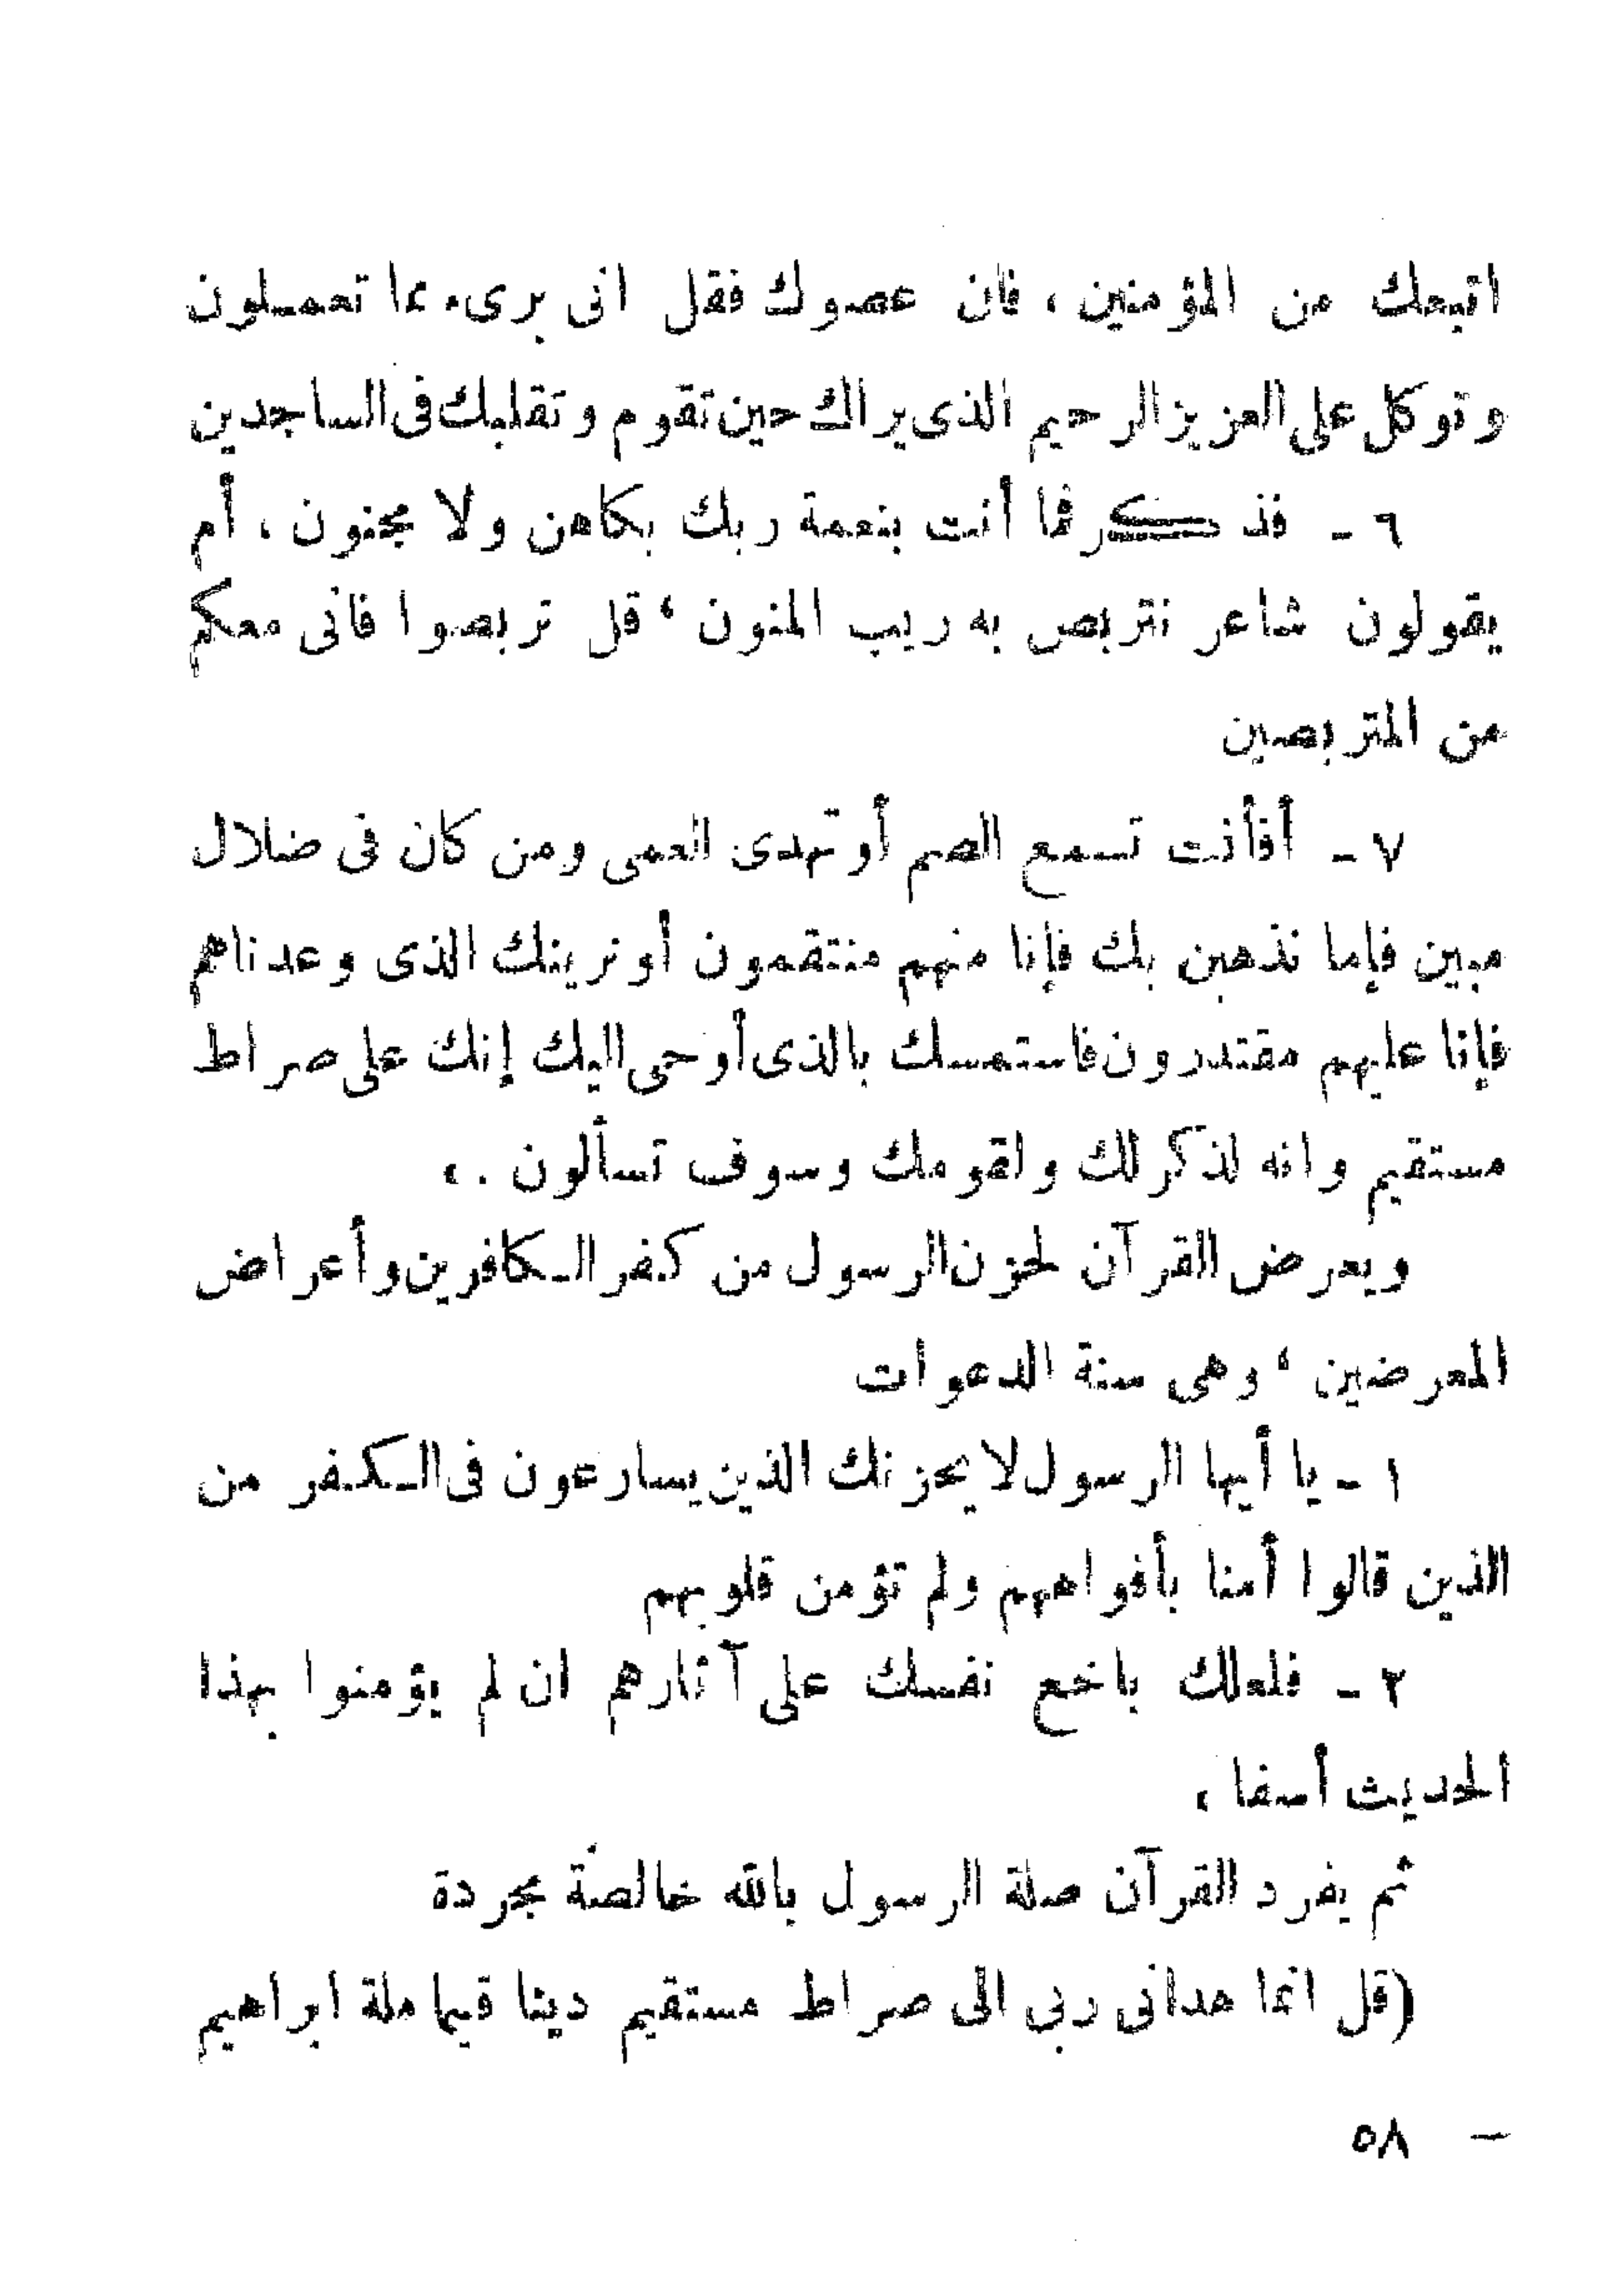 اتبعك من المؤمنين ، فان عصوك فقل انى برىء مما تعملون
وتوكل على العزيز الرحيم الذى يراك حين تقوم وتقلبك فى الساجدين
٦ - فذكر فما أنت بنعمة ربك بكاهن ولا مجنون ، أم
يقولون شاعر نتربص به ريب المنون ، قل تربصوا فانى معكم
من المتربصين
٧ - أفأنت تسمع الصم أو تهدى العمى ومن كان فى ضلال
مبين فإما نذهبن بك فإنا منهم منتقمون أو نرينك الذى وعدناهم
فإنا عليهم مقتدرون فاستمسك بالذى أوحى اليك إنك على صراط
مستقيم وانه لذكر لك ولقومك وسوف تسألون . ،
ويعرض القرآن لحزن الرسول من كفر الكافرين وأعراض
المعرضين ، وهى سنة الدعوات
١ - يا أيها الرسول لا يحزنك الذين يسارعون فى الكفر من
الذين قالوا أمنا بأفواههم ولم تؤمن قلوبهم
٢ - فلعلك باخع نفسك على آثارهم ان لم يؤمنوا بهذا
الحديث أسفا ،
ثم يفرد القرآن صلة الرسول بالله خالصة مجردة
(قل انما هدانى ربى الى صراط مستقيم دينا قيما ملة ابراهيم
– ٥٨